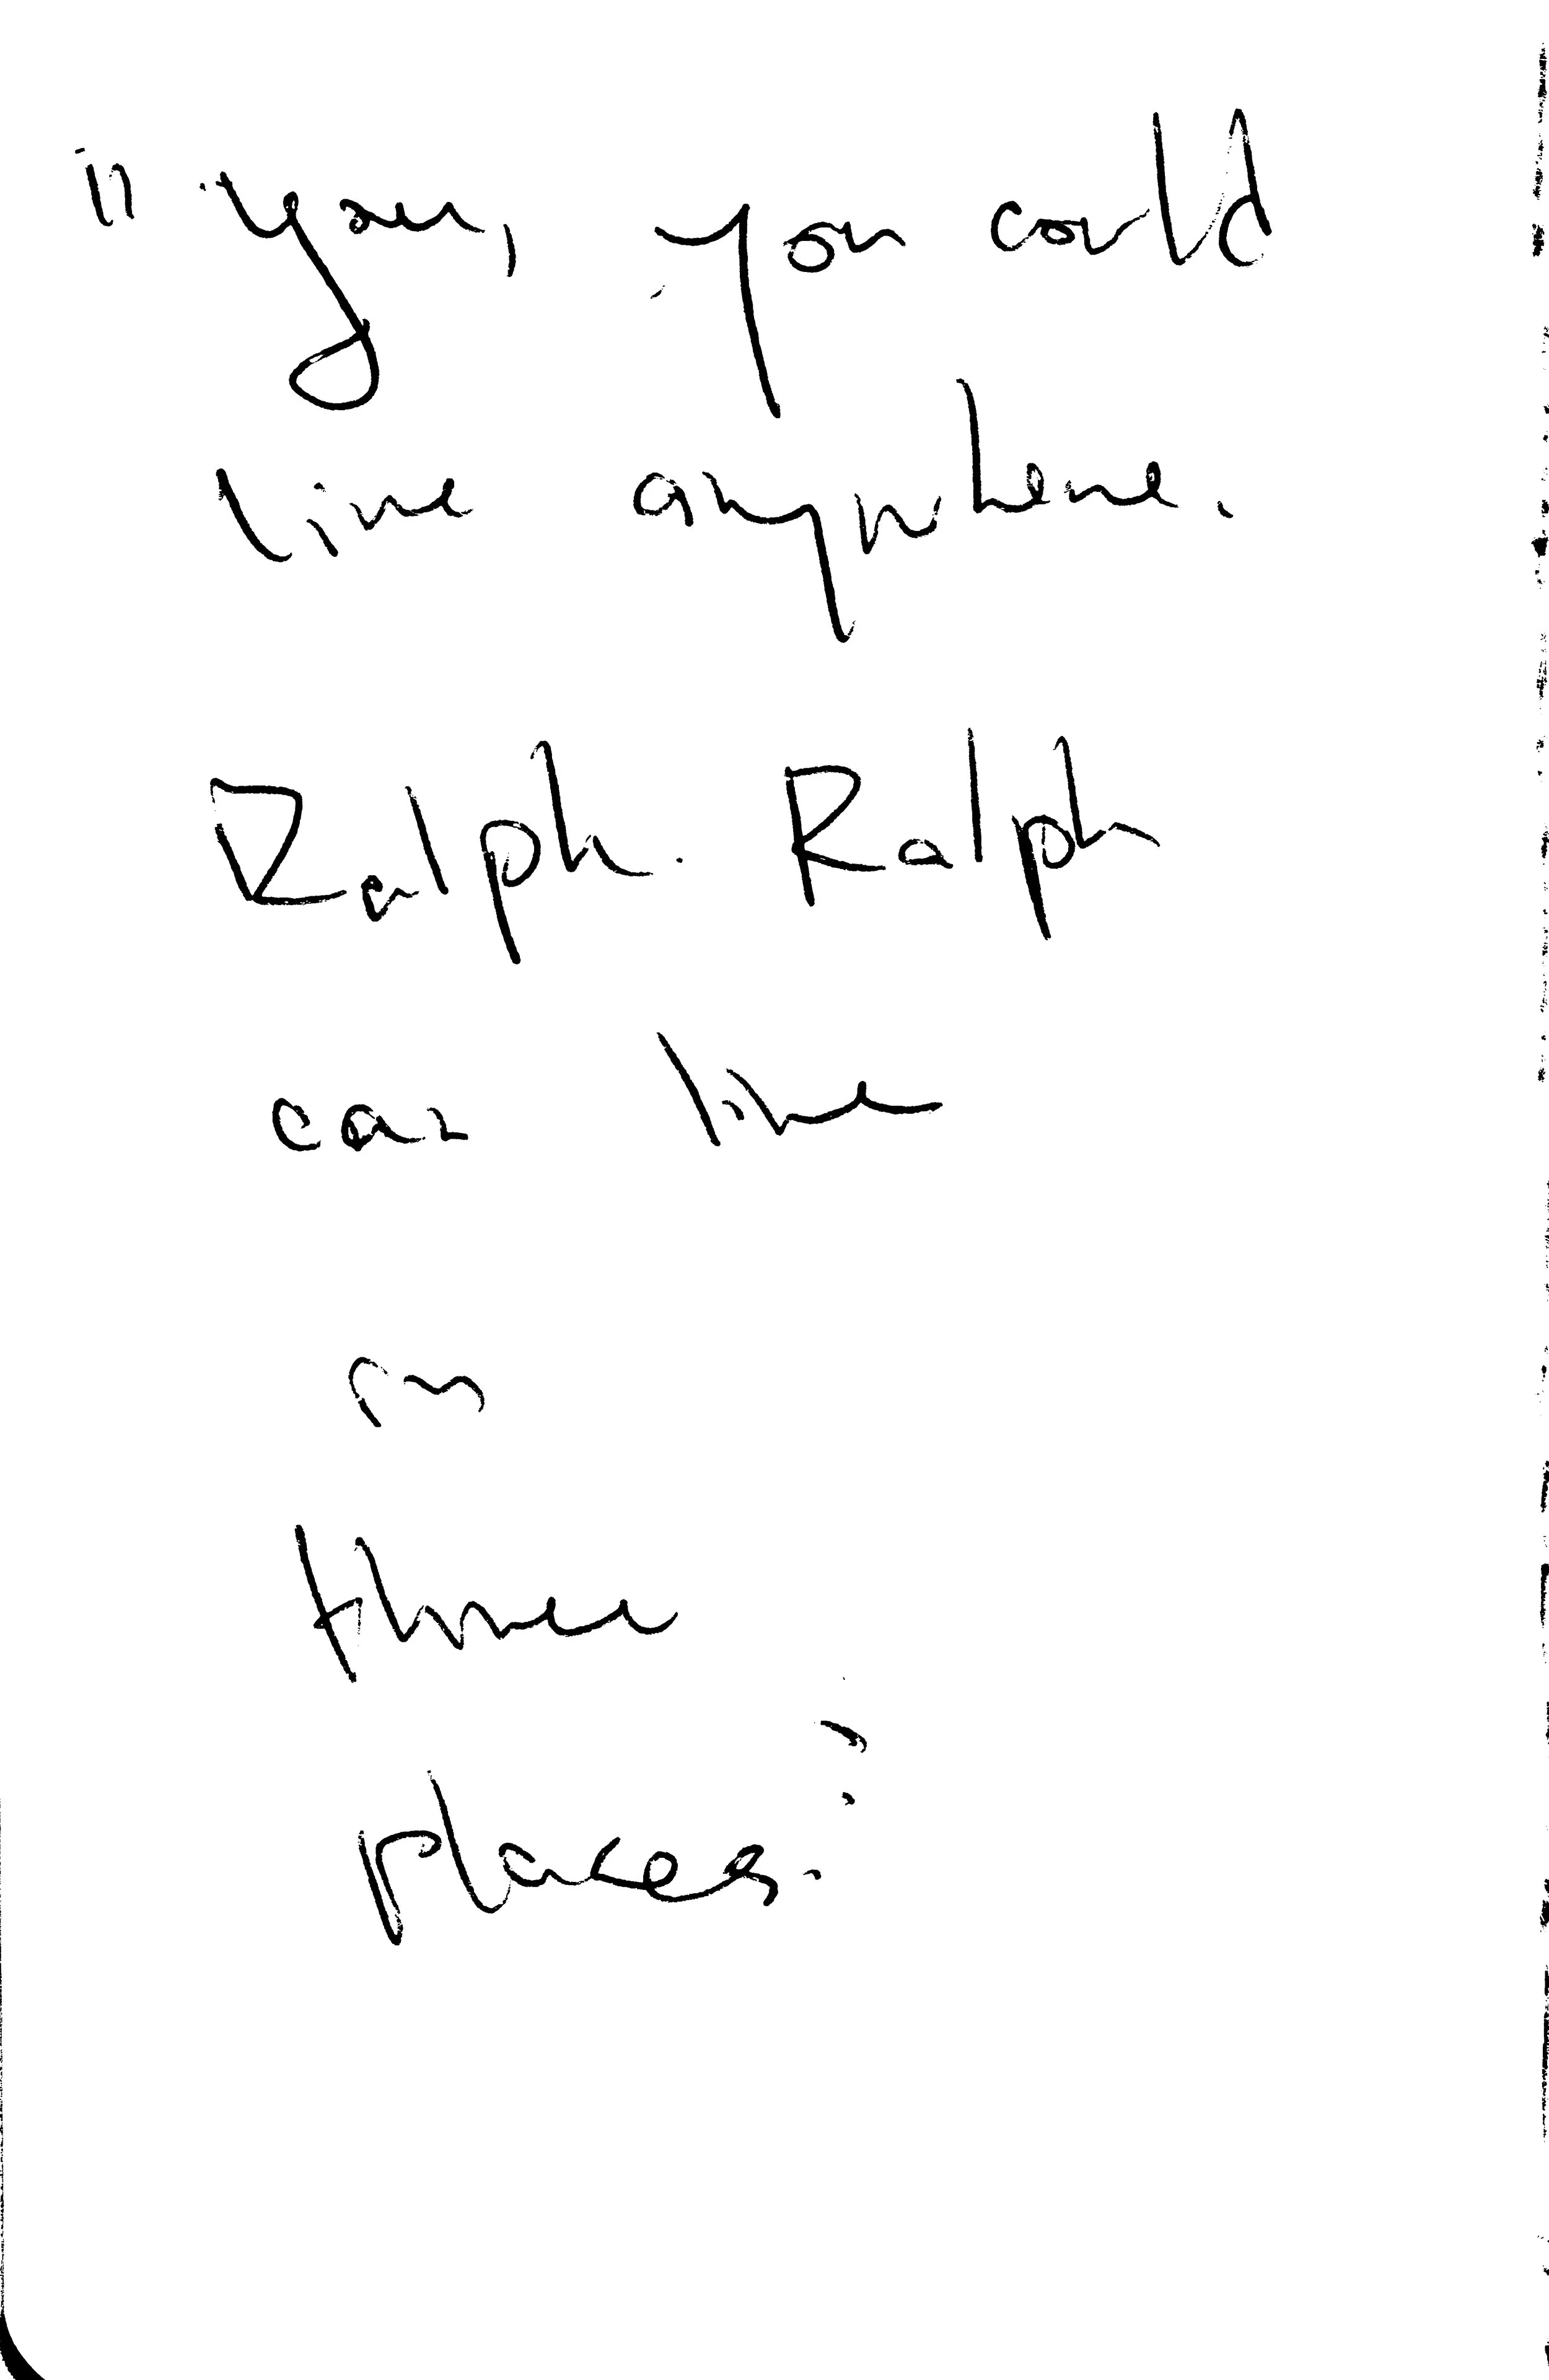 "You, you could
live anywhere.
Ralph. Ralph
can live
in
three
places."